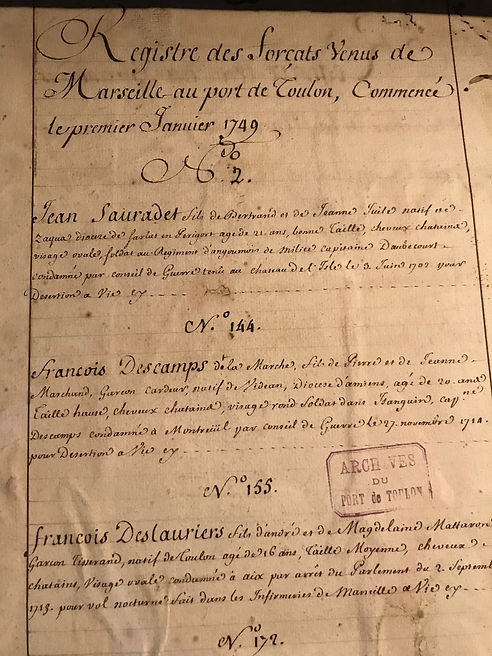 Registre des Forçats Venus de
Marseille au port de Toulon, Commencé
le premier Janvier 1749
N.º
2.
Jean Sauradet fils de Bertrand et de Jeanne natif de
Zaqua diocre de Sarlat en Perigort agé de 21. ans, bonne Taille, cheveux chatains,
visage ovale, soldat au Regiment d'angoumois de milice capitaine Daubecourt
Condamné par conseil de Guerre tenu au chateau de l'Isle le 3. Juin 1702 pour
Desertion a Vie cy
N.º 144.
francois Descamps de la Marche, fils de Pierre et de Jeanne
Marchand, Garçon cardeur, natif de Diocese d'amiens, agé de 20. ans
Taille haute, cheveux chatains visage rond Soldat dans capne
Descamps condamné a Montreüil par conseil de Guerre le 27. novembre 1714.
pour Desertion a Vie cy
N.º 155.
ARCHIVES
DU
PORT de TOULON
francois Deslauriers fils d'andré et de Magdelaine Mattaron
Garçon Tisserand, natif de Toulon agé de 16 ans, Taille Moyenne, cheveux
chatains, Visage ovale condamné a aix par arrêt du Parlement du 2. Septemb
1715. pour vol nocturne fait dans les Infirmeries de Marseille a Vie cy
N.º 172.